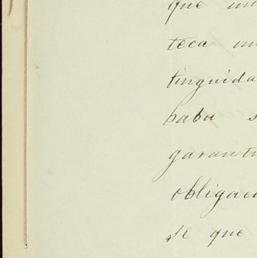 que un
teca un
tinguida
haba s
garanti
obligaci
se que